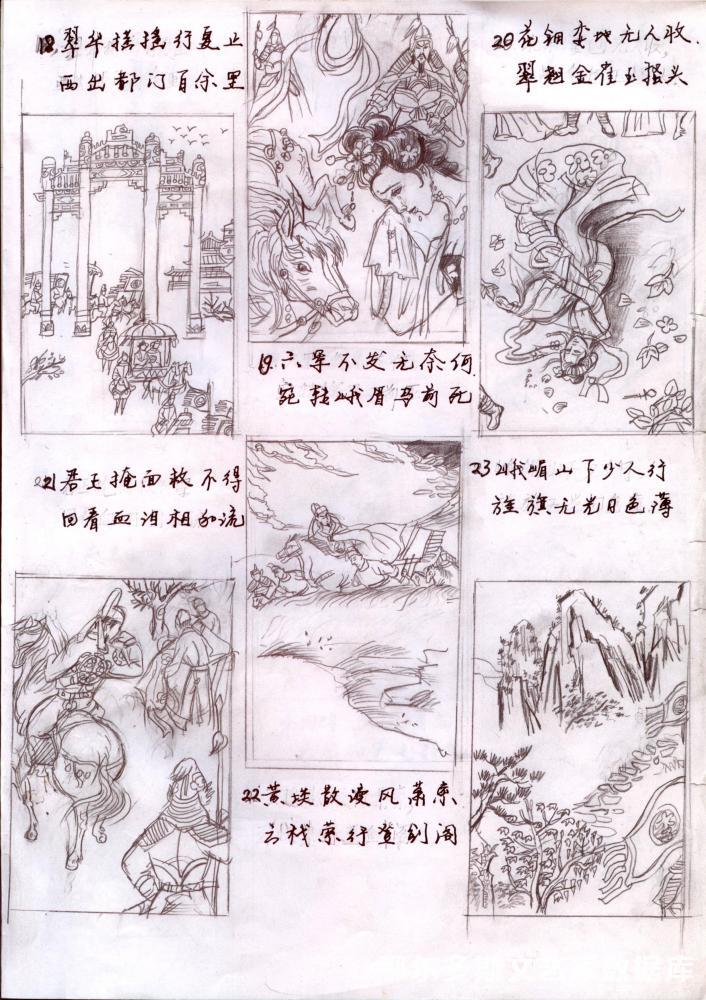 18.翠华摇摇行复止
西出都门百余里
19.六军不发无奈何
宛转峨眉马前死
20花钿委地无人收.
翠翘金雀玉搔头
21君王掩面救不得
回看血泪相和流
22.黄埃散漫风萧索
云栈萦行登剑阁
23峨嵋山下少人行
旌旗无光日色薄
文
数据库